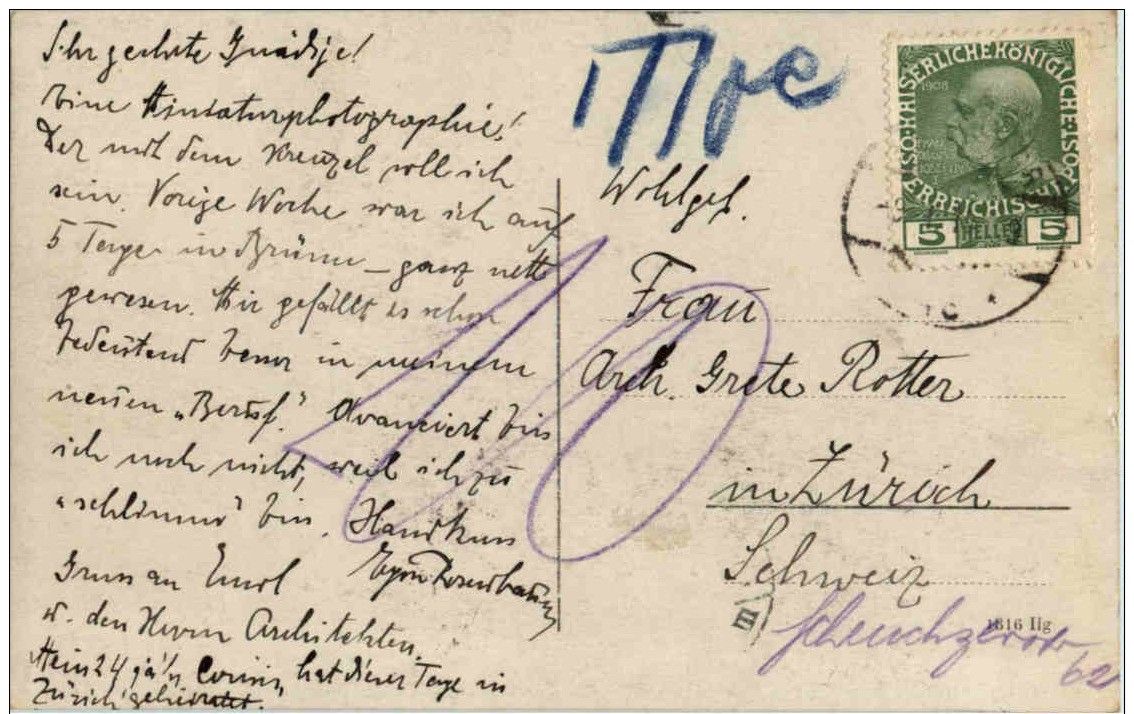 Sehr geehrte Gnädige!
Eine Miniaturphotographie!
Der mit dem Kreuzel soll ich
sein. Vorige Woche war ich auf
5 Tage in Brünn – ganz nett
gewesen. Mir gefällt es schon
bedeutend besser in meinem
neuen „Beruf." Avanciert bin
ich noch nicht, weil ich zu
„schlimm" bin. Handkuss
Egon
Gruss an Emil
u. den Herrn Architekten.
Mein 24 jähr. Cousin hat dieser Tage in
Zürich geheiratet.
10
KAISERLICHE KÖNIGLICHE ÖSTERREICHISCHE POST
1908
5 HELLER 5
Wohlgeb.
Frau
Arch. Grete Rotter
in Zürich
Schweiz
m
1616 IIg
62